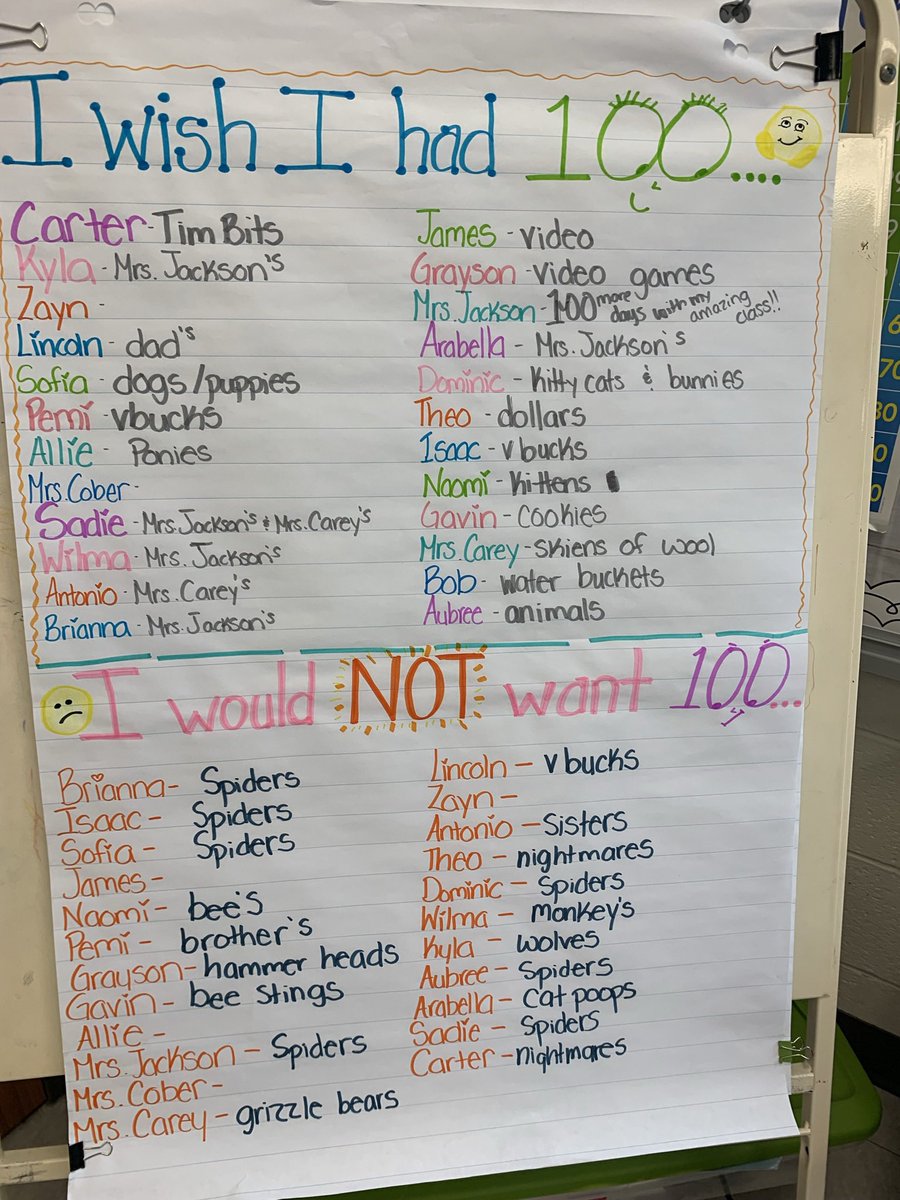 I wish I had 100....
Carter - Tim Bits
Kyla - Mrs. Jackson's
Zayn -
Lincoln - dad's
Sofia - dogs/puppies
Pemi - vbucks
Allie - Ponies
Mrs. Cober -
Sadie - Mrs. Jackson's & Mrs. Carey's
Wilma - Mrs. Jackson's
Antonio - Mrs. Carey's
Brianna - Mrs. Jackson's
James - video
Grayson - video games
Mrs. Jackson - 100 more days with my amazing class!!
Arabella - Mrs. Jackson's
Dominic - kitty cats & bunnies
Theo - dollars
Isaac - vbucks
Naomi - kittens
Gavin - cookies
Mrs. Carey - skiens of wool
Bob - water buckets
Aubree - animals
I would NOT want 100...
Brianna - Spiders
Isaac - Spiders
Sofia - Spiders
James -
Naomi - bee's
Pemi - brother's
Grayson - hammer heads
Gavin - bee stings
Allie -
Mrs. Jackson - Spiders
Mrs. Cober -
Mrs. Carey - grizzle bears
Lincoln - vbucks
Zayn -
Antonio - Sisters
Theo - nightmares
Dominic - Spiders
Wilma - monkey's
Kyla - wolves
Aubree - Spiders
Arabella - Cat poops
Sadie - Spiders
Carter - nightmares